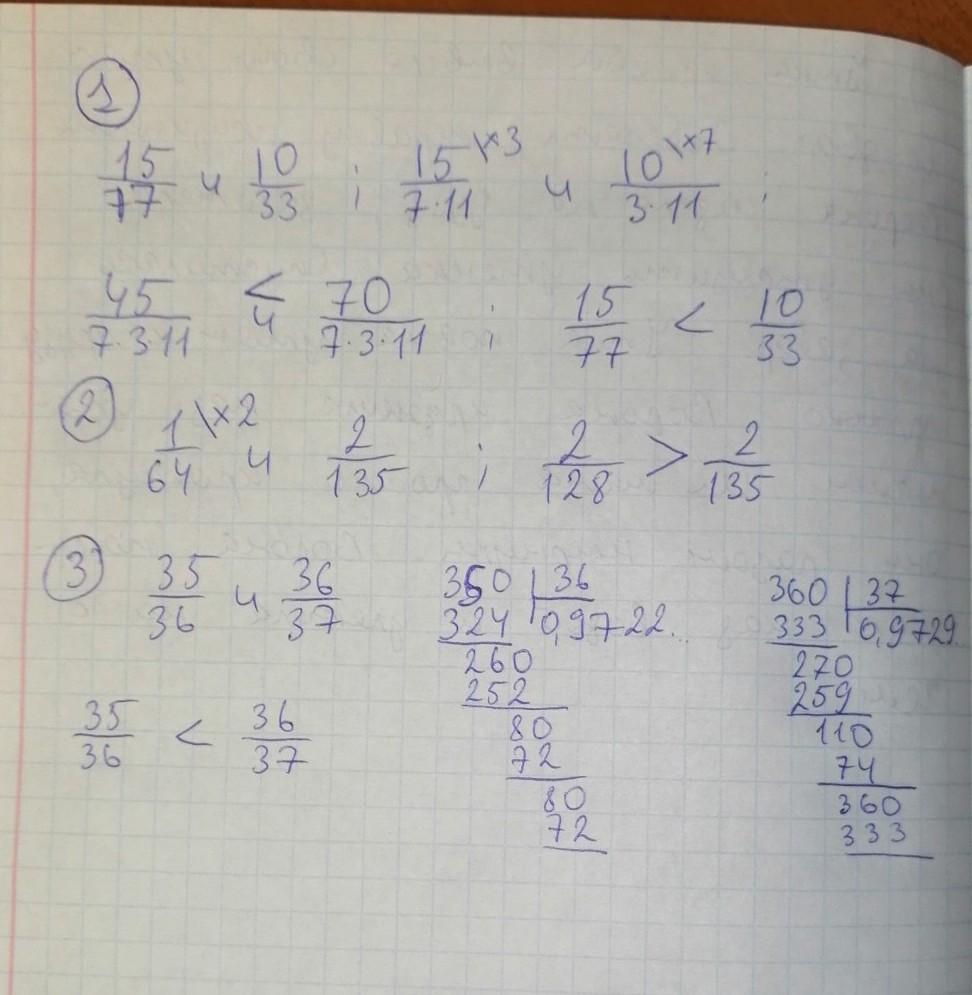 1
15/77 и 10/33 ; 15\×3/7·11 и 10\×7/3·11 ;
45/7·3·11 < и 70/7·3·11 ; 15/77 < 10/33
2
1\×2/64 и 2/135 ; 2/128 > 2/135
3
35/36 и 36/37
35/36 < 36/37
350 | 36
324 | 0,9722...
260
252
80
72
80
72
360 | 37
333 | 0,9729...
270
259
110
74
360
333